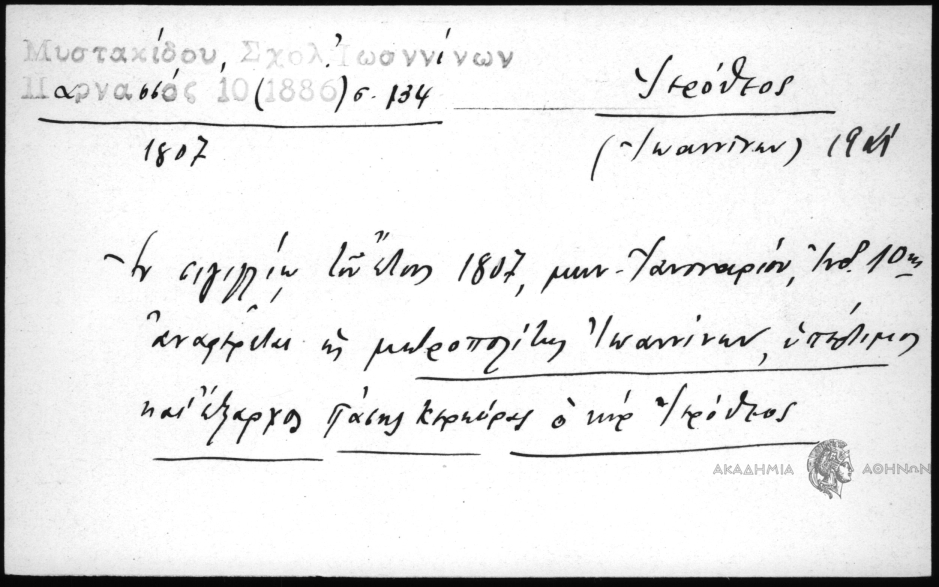 Μυστακίδου, Σχολ. Ἰωαννίνων
Παρνασσός 10 (1886) σ. 134
Ἱερόθεος
1807
(Ἰωαννίνων)
Ἐν σιγιλλίῳ τοῦ ἔτους 1807, μην. Ἰανουαρίου, Ἰνδ. 10ης
ἀναφέρεται ὡς μητροπολίτης Ἰωαννίνων, ὑπέρτιμος
καὶ ἔξαρχος πάσης Κερκύρας ὁ κὺρ Ἱερόθεος
ΑΚΑΔΗΜΙΑ ΑΘΗΝΩΝ